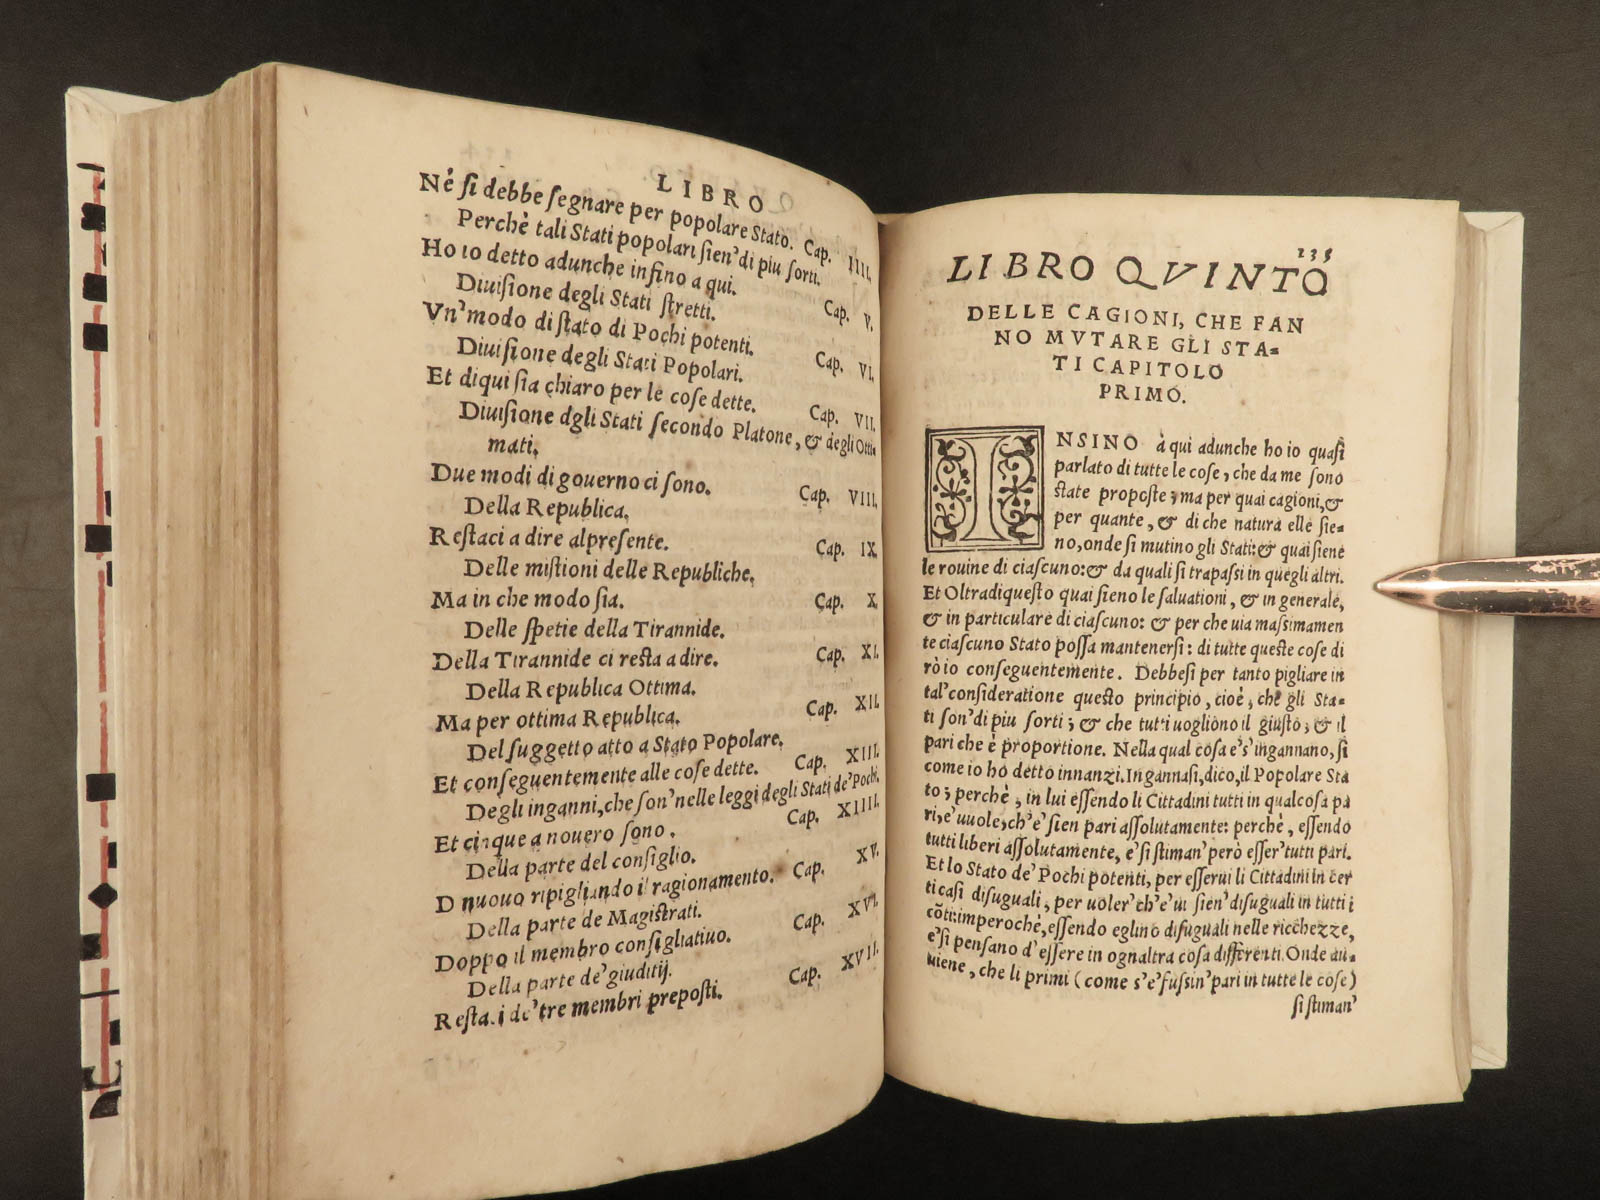 LIBRO
Né si debbe segnare per popolare Stato. Cap. IIII.
Perchè tali Stati popolari sien' di piu sorti.
Ho io detto adunche insino a qui. Cap. V.
Diuisione degli Stati stretti.
Vn' modo di stato di Pochi potenti. Cap. VI.
Diuisione degli Stati Popolari.
Et di qui sia chiaro per le cose dette. Cap. VII.
Diuisione dgli Stati secondo Platone, & degli Otti-
mati.
Due modi di gouerno ci sono. Cap. VIII.
Della Republica.
Restaci a dire alpresente. Cap. IX.
Delle mistioni delle Republiche.
Ma in che modo sia. Cap. X.
Delle spetie della Tirannide.
Della Tirannide ci resta a dire. Cap. XI.
Della Republica Ottima.
Ma per ottima Republica. Cap. XII.
Del suggetto atto a Stato Popolare.
Et conseguentemente alle cose dette. Cap. XIII.
Degli inganni, che son' nelle leggi degli Stati de' Pochi.
Et cinque a nouero sono. Cap. XIIII.
Della parte del consiglio.
D nuouo ripigliando il ragionamento. Cap. XV.
Della parte de Magistrati.
Doppo il membro consigliatiuo. Cap. XVI.
Della parte de' giuditij.
Resta.i de' tre membri preposti. Cap. XVII.
235
LIBRO QVINTO
DELLE CAGIONI, CHE FAN
NO MVTARE GLI STA-
TI CAPITOLO
PRIMO.
INSINO à qui adunche ho io quasi
parlato di tutte le cose, che da me sono
state proposte; ma per quai cagioni, &
per quante, & di che natura elle sie-
no, onde si mutino gli Stati: & quai siene
le rouine di ciascuno: & da quali si trapassi in quegli altri.
Et Oltradiquesto quai sieno le saluationi, & in generale,
& in particulare di ciascuno: & per che uia massimamen
te ciascuno Stato possa mantenersi: di tutte queste cose di
rò io conseguentemente. Debbesi per tanto pigliare in
tal' consideratione questo principio, cioè, che gli Sta-
ti son' di piu sorti; & che tutti uogliono il giusto; & il
pari che è proportione. Nella qual cosa e's' ingannano, si
come io ho detto innanzi. Ingannasi, dico, il Popolare Sta
to; perchè, in lui essendo li Cittadini tutti in qualcosa pa
ri, e' uuole, ch'e' sien pari assolutamente: perchè, essendo
tutti liberi assolutamente, e' si stiman' però esser' tutti pari.
Et lo Stato de' Pochi potenti, per esserui li Cittadini in cer
ti casi disuguali, per uoler' ch'e' ui sien' disuguali in tutti i
cōti: imperochè, essendo eglino disuguali nelle ricchezze,
e' si pensano d' essere in ognaltra cosa differenti. Onde au-
uiene, che li primi (come s'e' fussin' pari in tutte le cose)
si stiman'